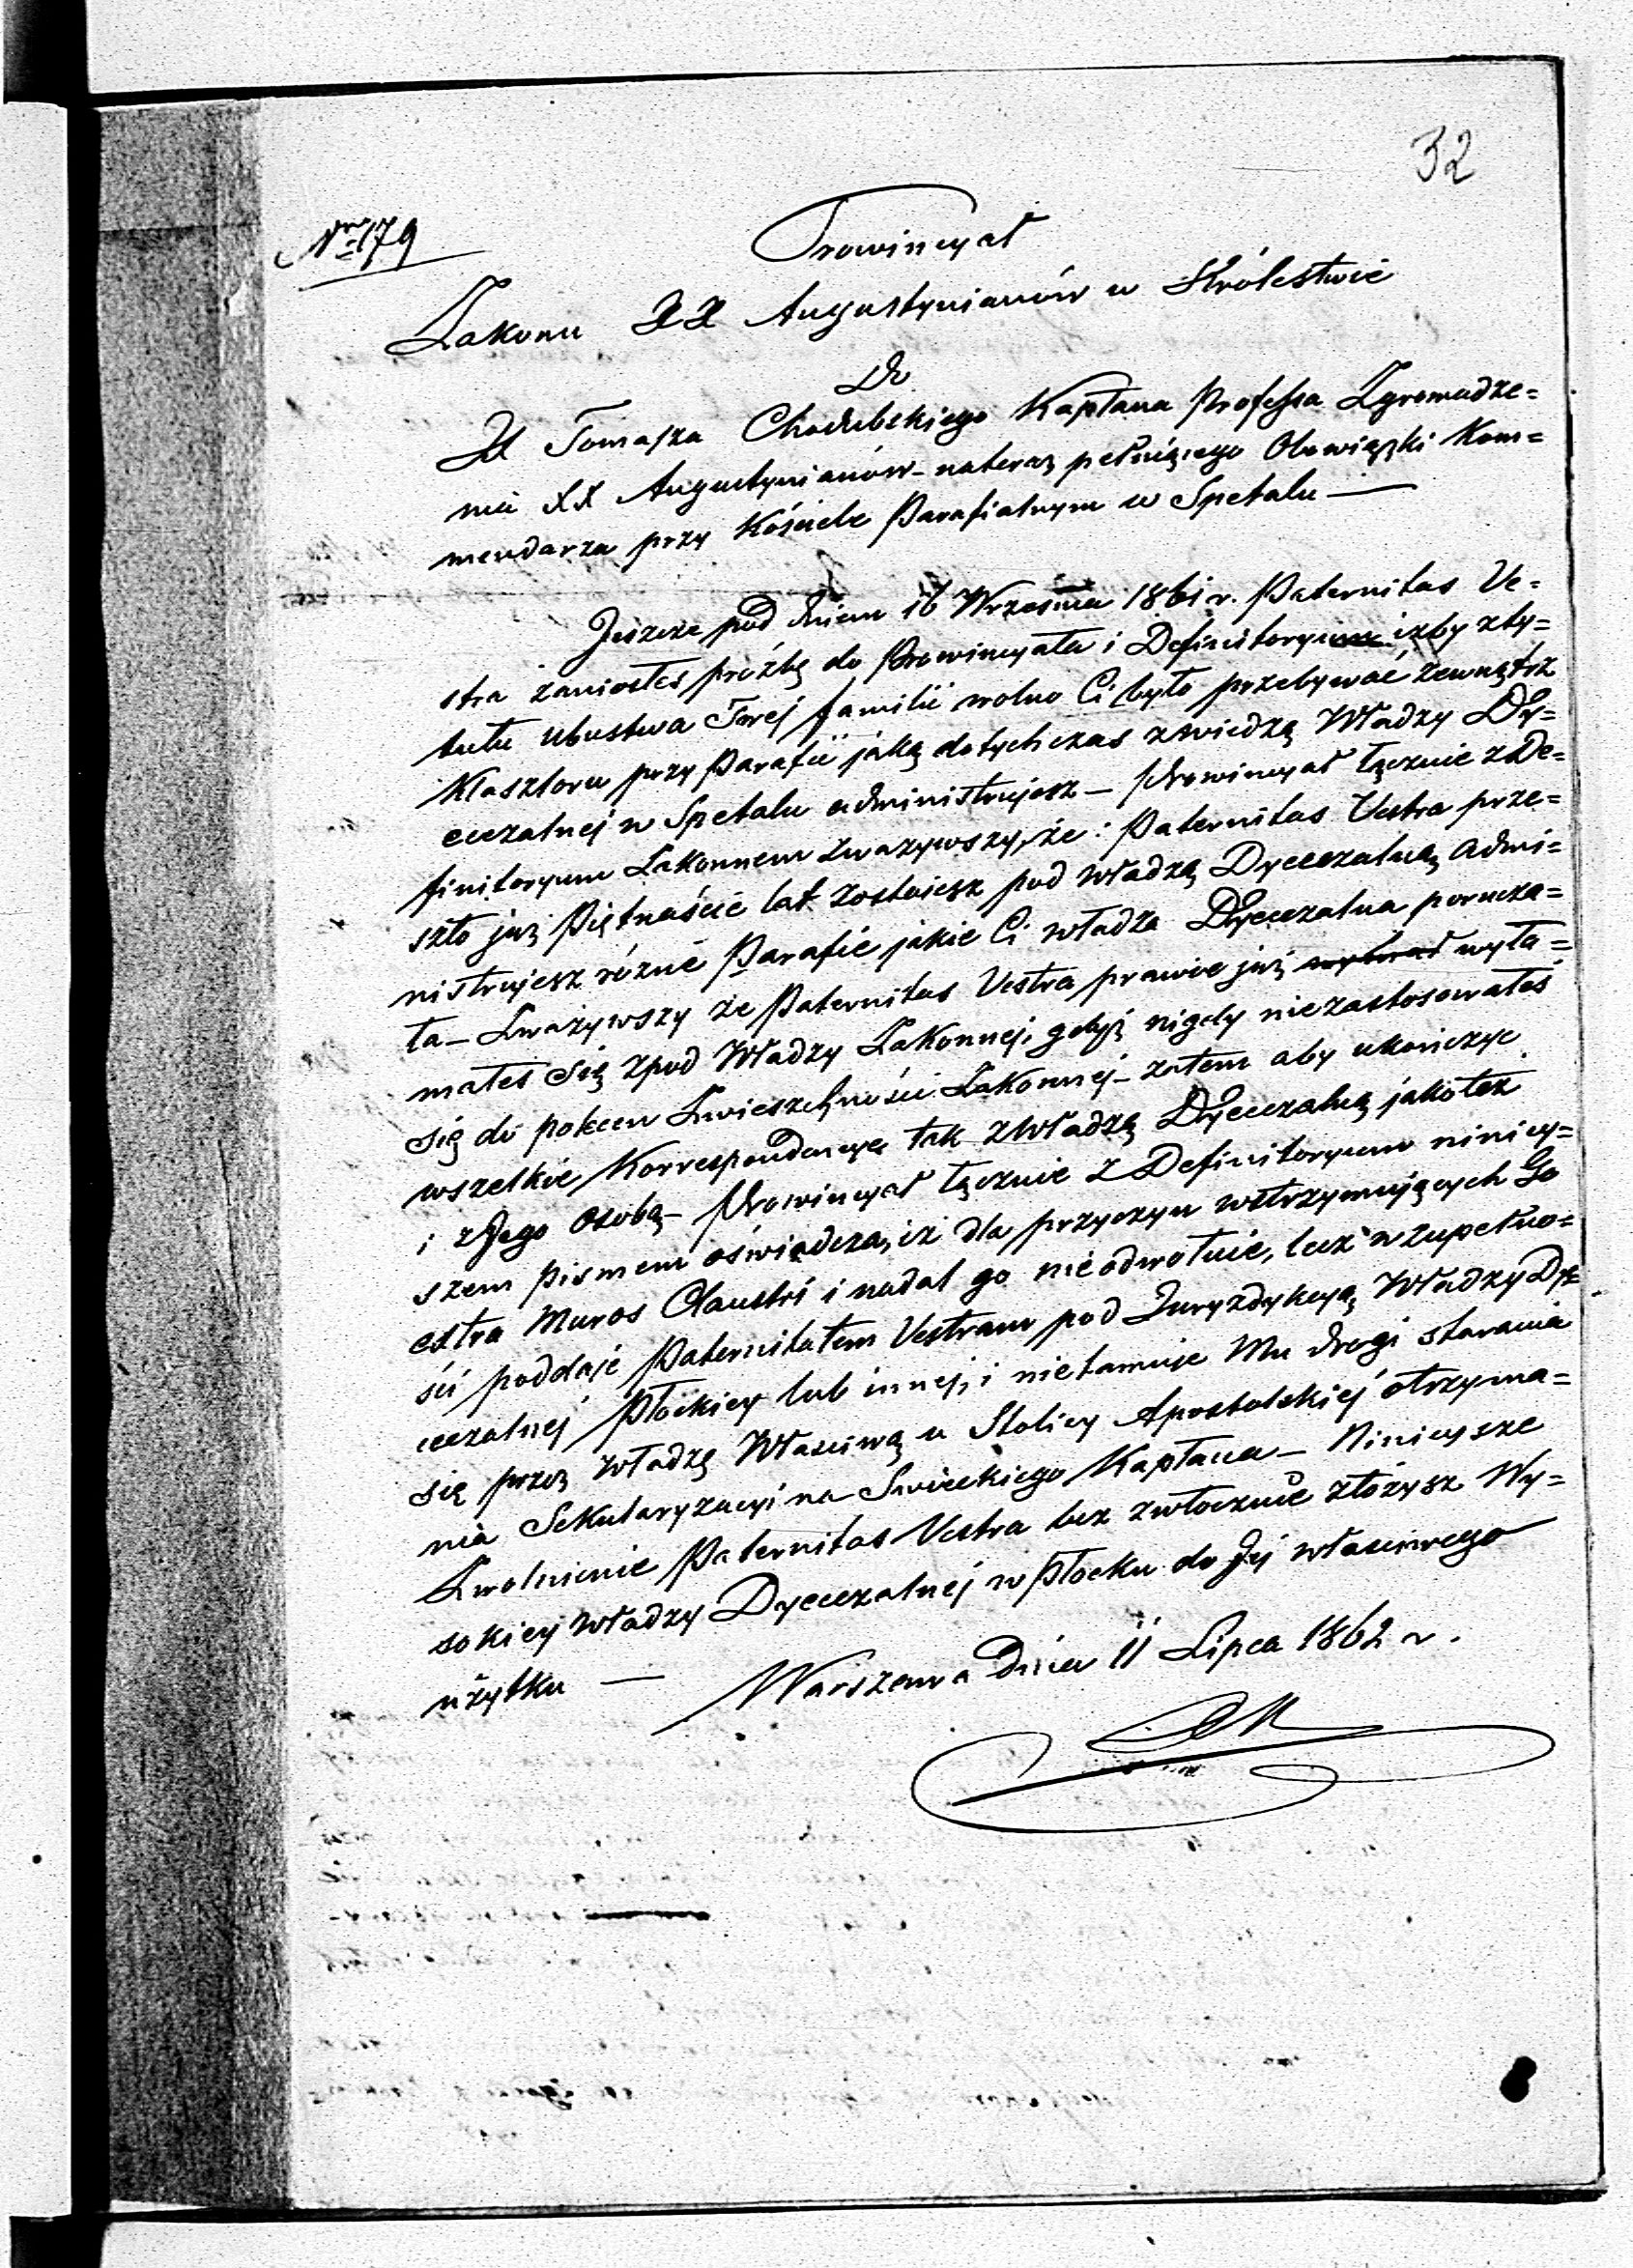 32
Nro 179
Prowincyał
Zakonu XX Augustynianów w Królestwie
Do
X Tomasza Chodubskiego Kapłana Professa Zgromadze=
nia XX Augustynianów - nateraz pełniącego Obowiązki Kom=
mendarza przy Kościele Parafialnym w Spetalu —
Jeszcze pod dniem 16 Września 1861 r. Paternitas Ve=
stra zaniosłeś proźbę do Prowincyała i Definitoryum izby zty=
tułu ubustwa Twej familii wolno Ci było przebywać zewnątrz
Klasztoru przy Parafii jaką dotychczas zwiedzą Władzy Dy=
ecezalnej w Spetalu administrujesz — Prowincyał łącznie z De=
finitoryum Zakonnem zważywszy, że: Paternitas Vestra prze=
szło już Piętnaście lat zostajesz pod władzą Dyecezalną admi=
nistrujesz różne Parafie jakie Ci władza Dyecezalna porucza=
ła — Zważywszy że Paternitas Vestra prawie już wyła=
małeś się zpod Władzy Zakonnej, gdyż nigdy niezastosowałeś
się do poleceń Zwieszchności Zakonnej — zatem aby ukończyć
wszelkie Korrespondencye tak z władzą Dyecezalną jakoteż
i z Jego Osobą — Prowincyał łącznie z Definitoryum niniej=
szem pismem oświadcza, iż dla przyczyn wstrzymujących Go
extra Muros Claustri i nadal go nieodwołuie, lecz w zupełno=
ści poddaje Paternitatem Vestram pod Juryzdykcyą Władzy Dy=
ecezalnej Płockiey lub innej, i nietamuje Mu drogi starania
się przez władzę Właściwą u Stolicy Apostolskiej otrzyma=
nia Sekularyzacyi na Świeckiego Kapłana — Niniejsze
Zwolnienie Paternitas Vestra bez zwłocznie złożysz Wy=
sokiey władzy Dyecezalnej w Płocku do Jej właściwego
użytku — Warszawa Dnia 11 Lipca 1862 r.